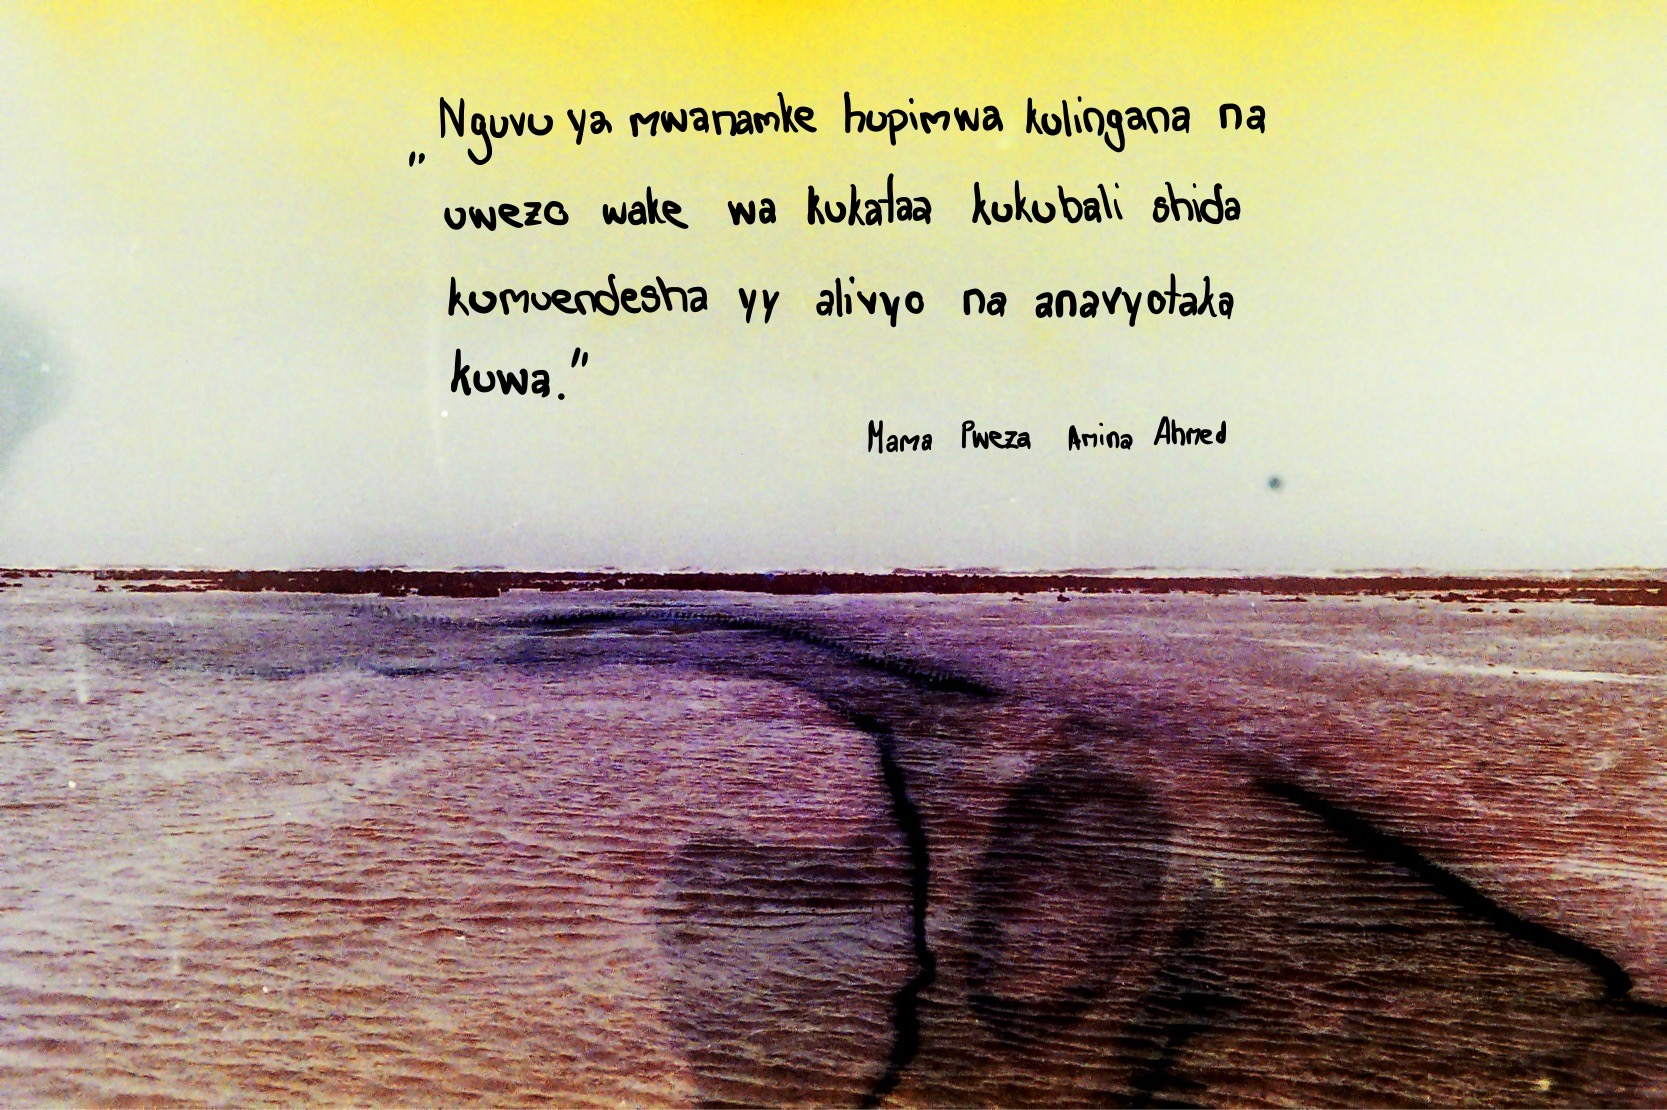 "Nguvu ya mwanamke hupimwa kulingana na
uwezo wake wa kukataa kukubali shida
kumuendesha yy alivyo na anavyotaka
kuwa."
Mama Pweza Amina Ahmed